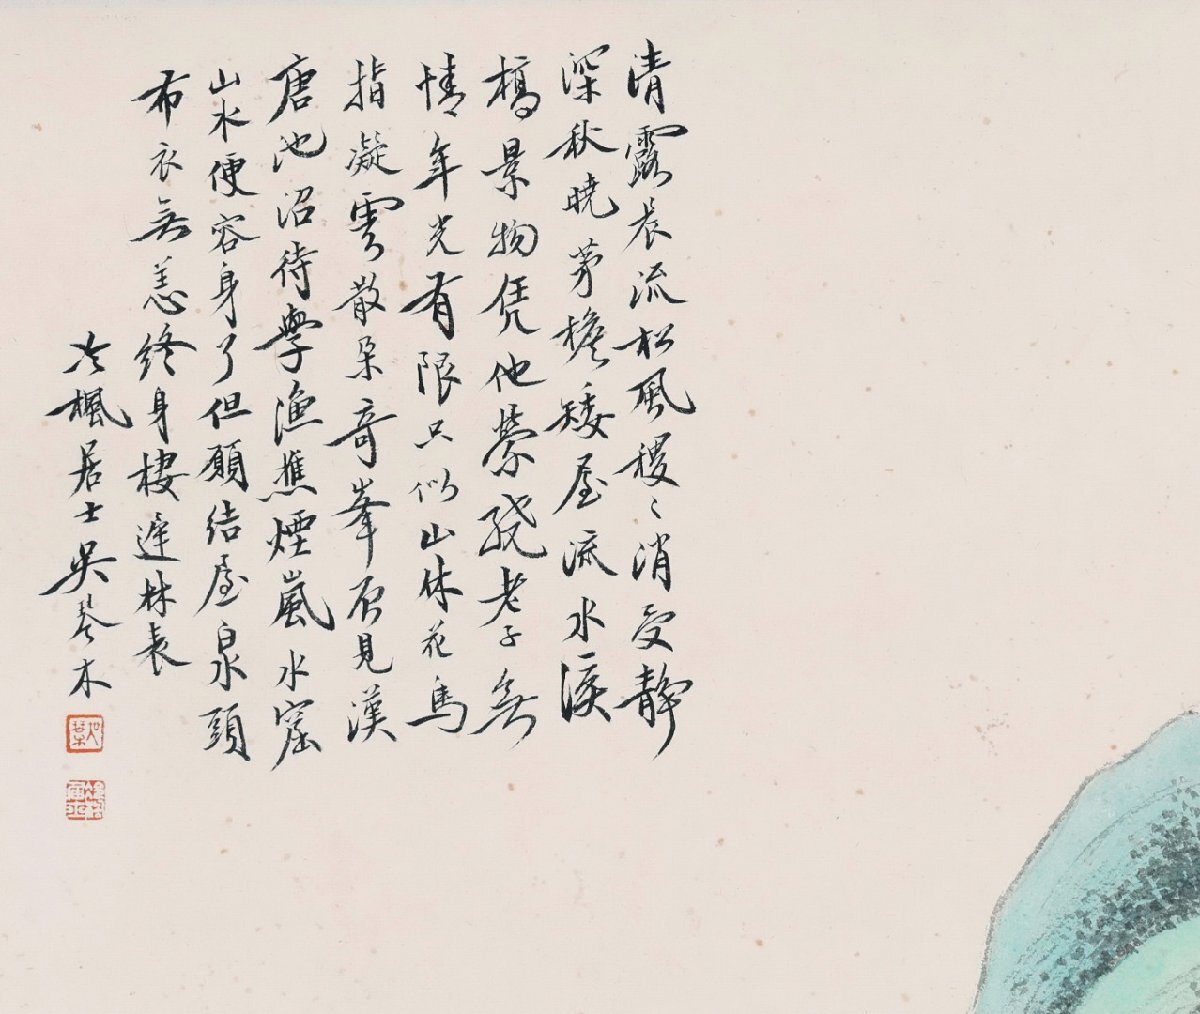 清露晨流松風稷〻消受靜
深秋曉茅檐矮屋流水溪
橋景物凭他縈繞老子無
情年光有限只似山林花鳥
指凝雲散朵奇峯見漢
唐池沼待學漁樵煙嵐水窟
山水便容身了但願結屋泉頭
布衣無恙終身棲遲林表
冷楓居士吳琴木